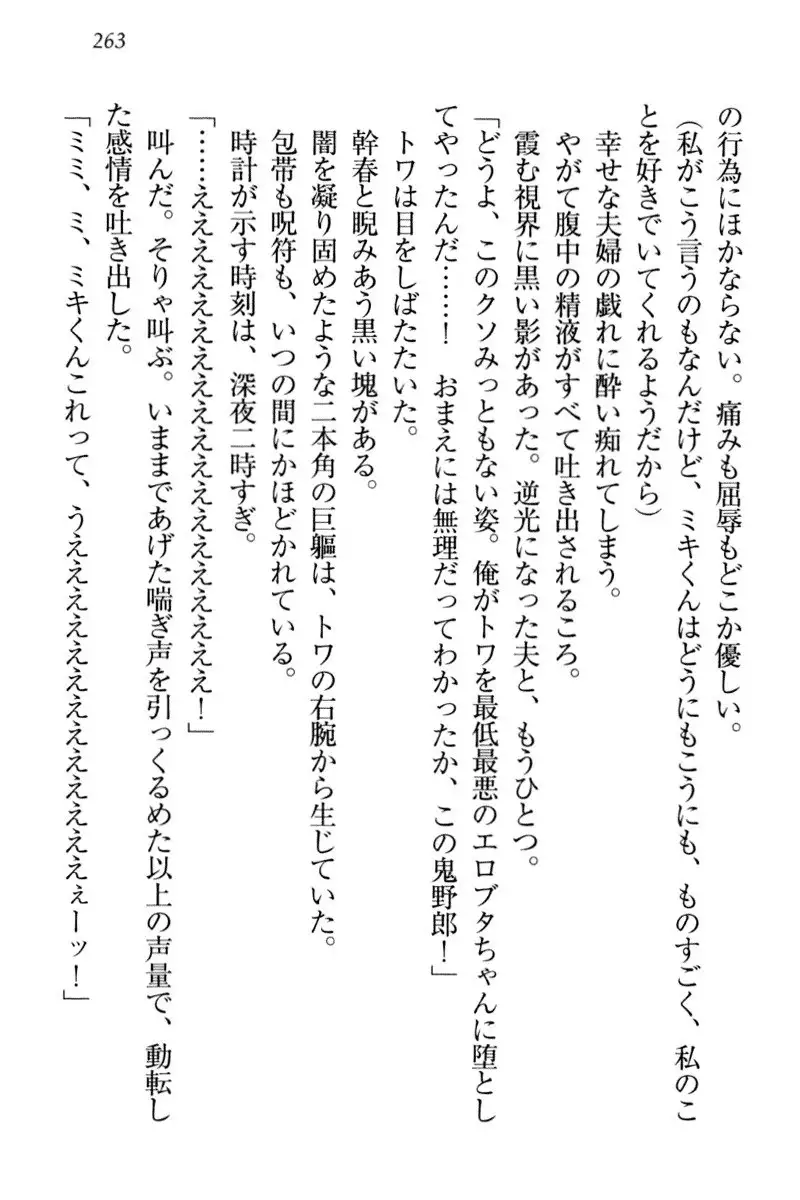 263
の行為にほかならない。痛みも屈辱もどこか優しい。
(私がこう言うのもなんだけど、ミキくんはどうにもこうにも、ものすごく、私のこ
とを好きでいてくれるようだから)
幸せな夫婦の戯れに酔い痴れてしまう。
やがて腹中の精液がすべて吐き出されるころ。
霞む視界に黒い影があった。逆光になった夫と、もうひとつ。
「どうよ、このクソみっともない姿。俺がトワを最低最悪のエロブタちゃんに堕とし
てやったんだ……!　おまえには無理だってわかったか、この鬼野郎!」
トワは目をしばたたいた。
幹春と睨みあう黒い塊がある。
闇を凝り固めたような二本角の巨軀は、トワの右腕から生じていた。
包帯も呪符も、いつの間にかほどかれている。
時計が示す時刻は、深夜二時すぎ。
「……ええええええええええええええええええ!」
叫んだ。そりゃ叫ぶ。いままであげた喘ぎ声を引っくるめた以上の声量で、動転し
た感情を吐き出した。
「ミミ、ミ、ミキくんこれって、うええええええええええええええええぇーッ!」